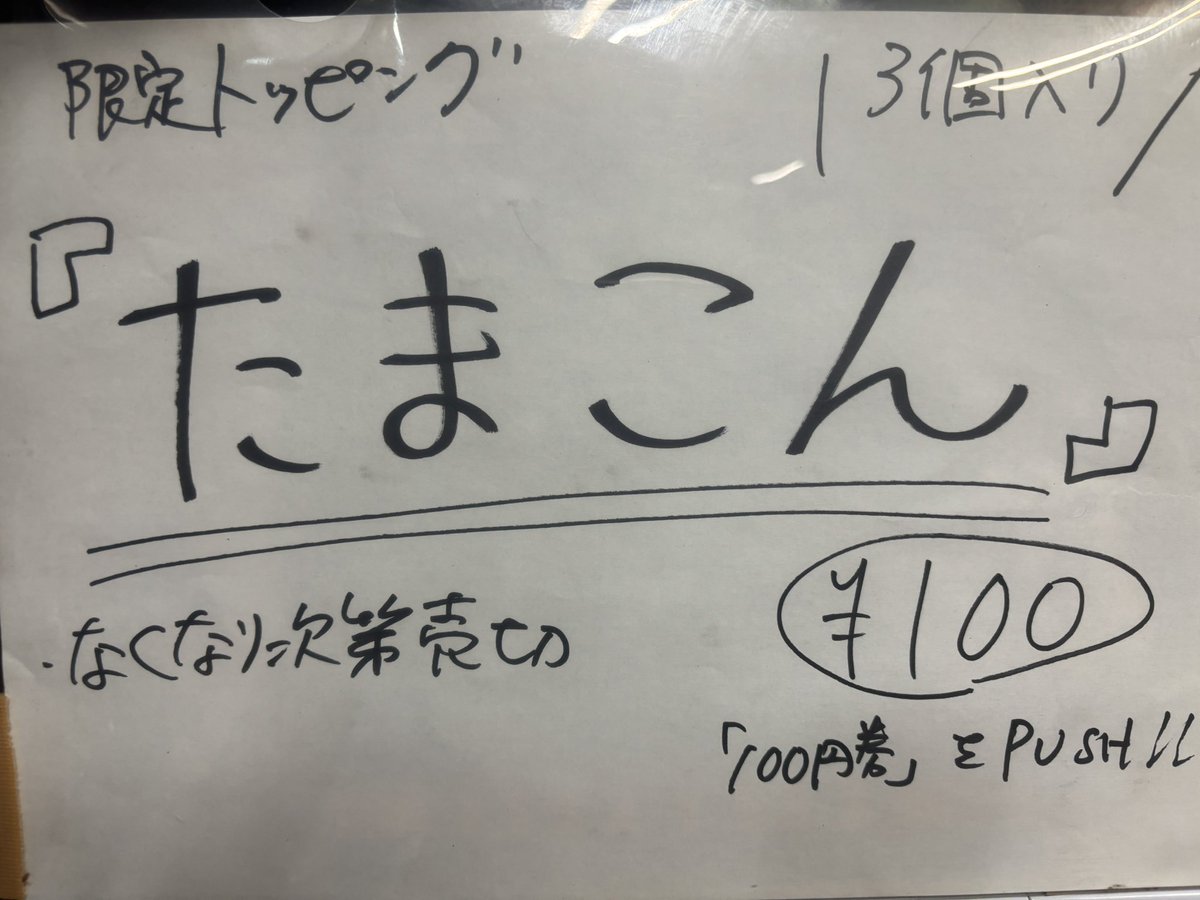 限定トッピング
\3個入り/
『たまこん』
・なくなり次第売切
¥100
「100円券」をPUSH!!